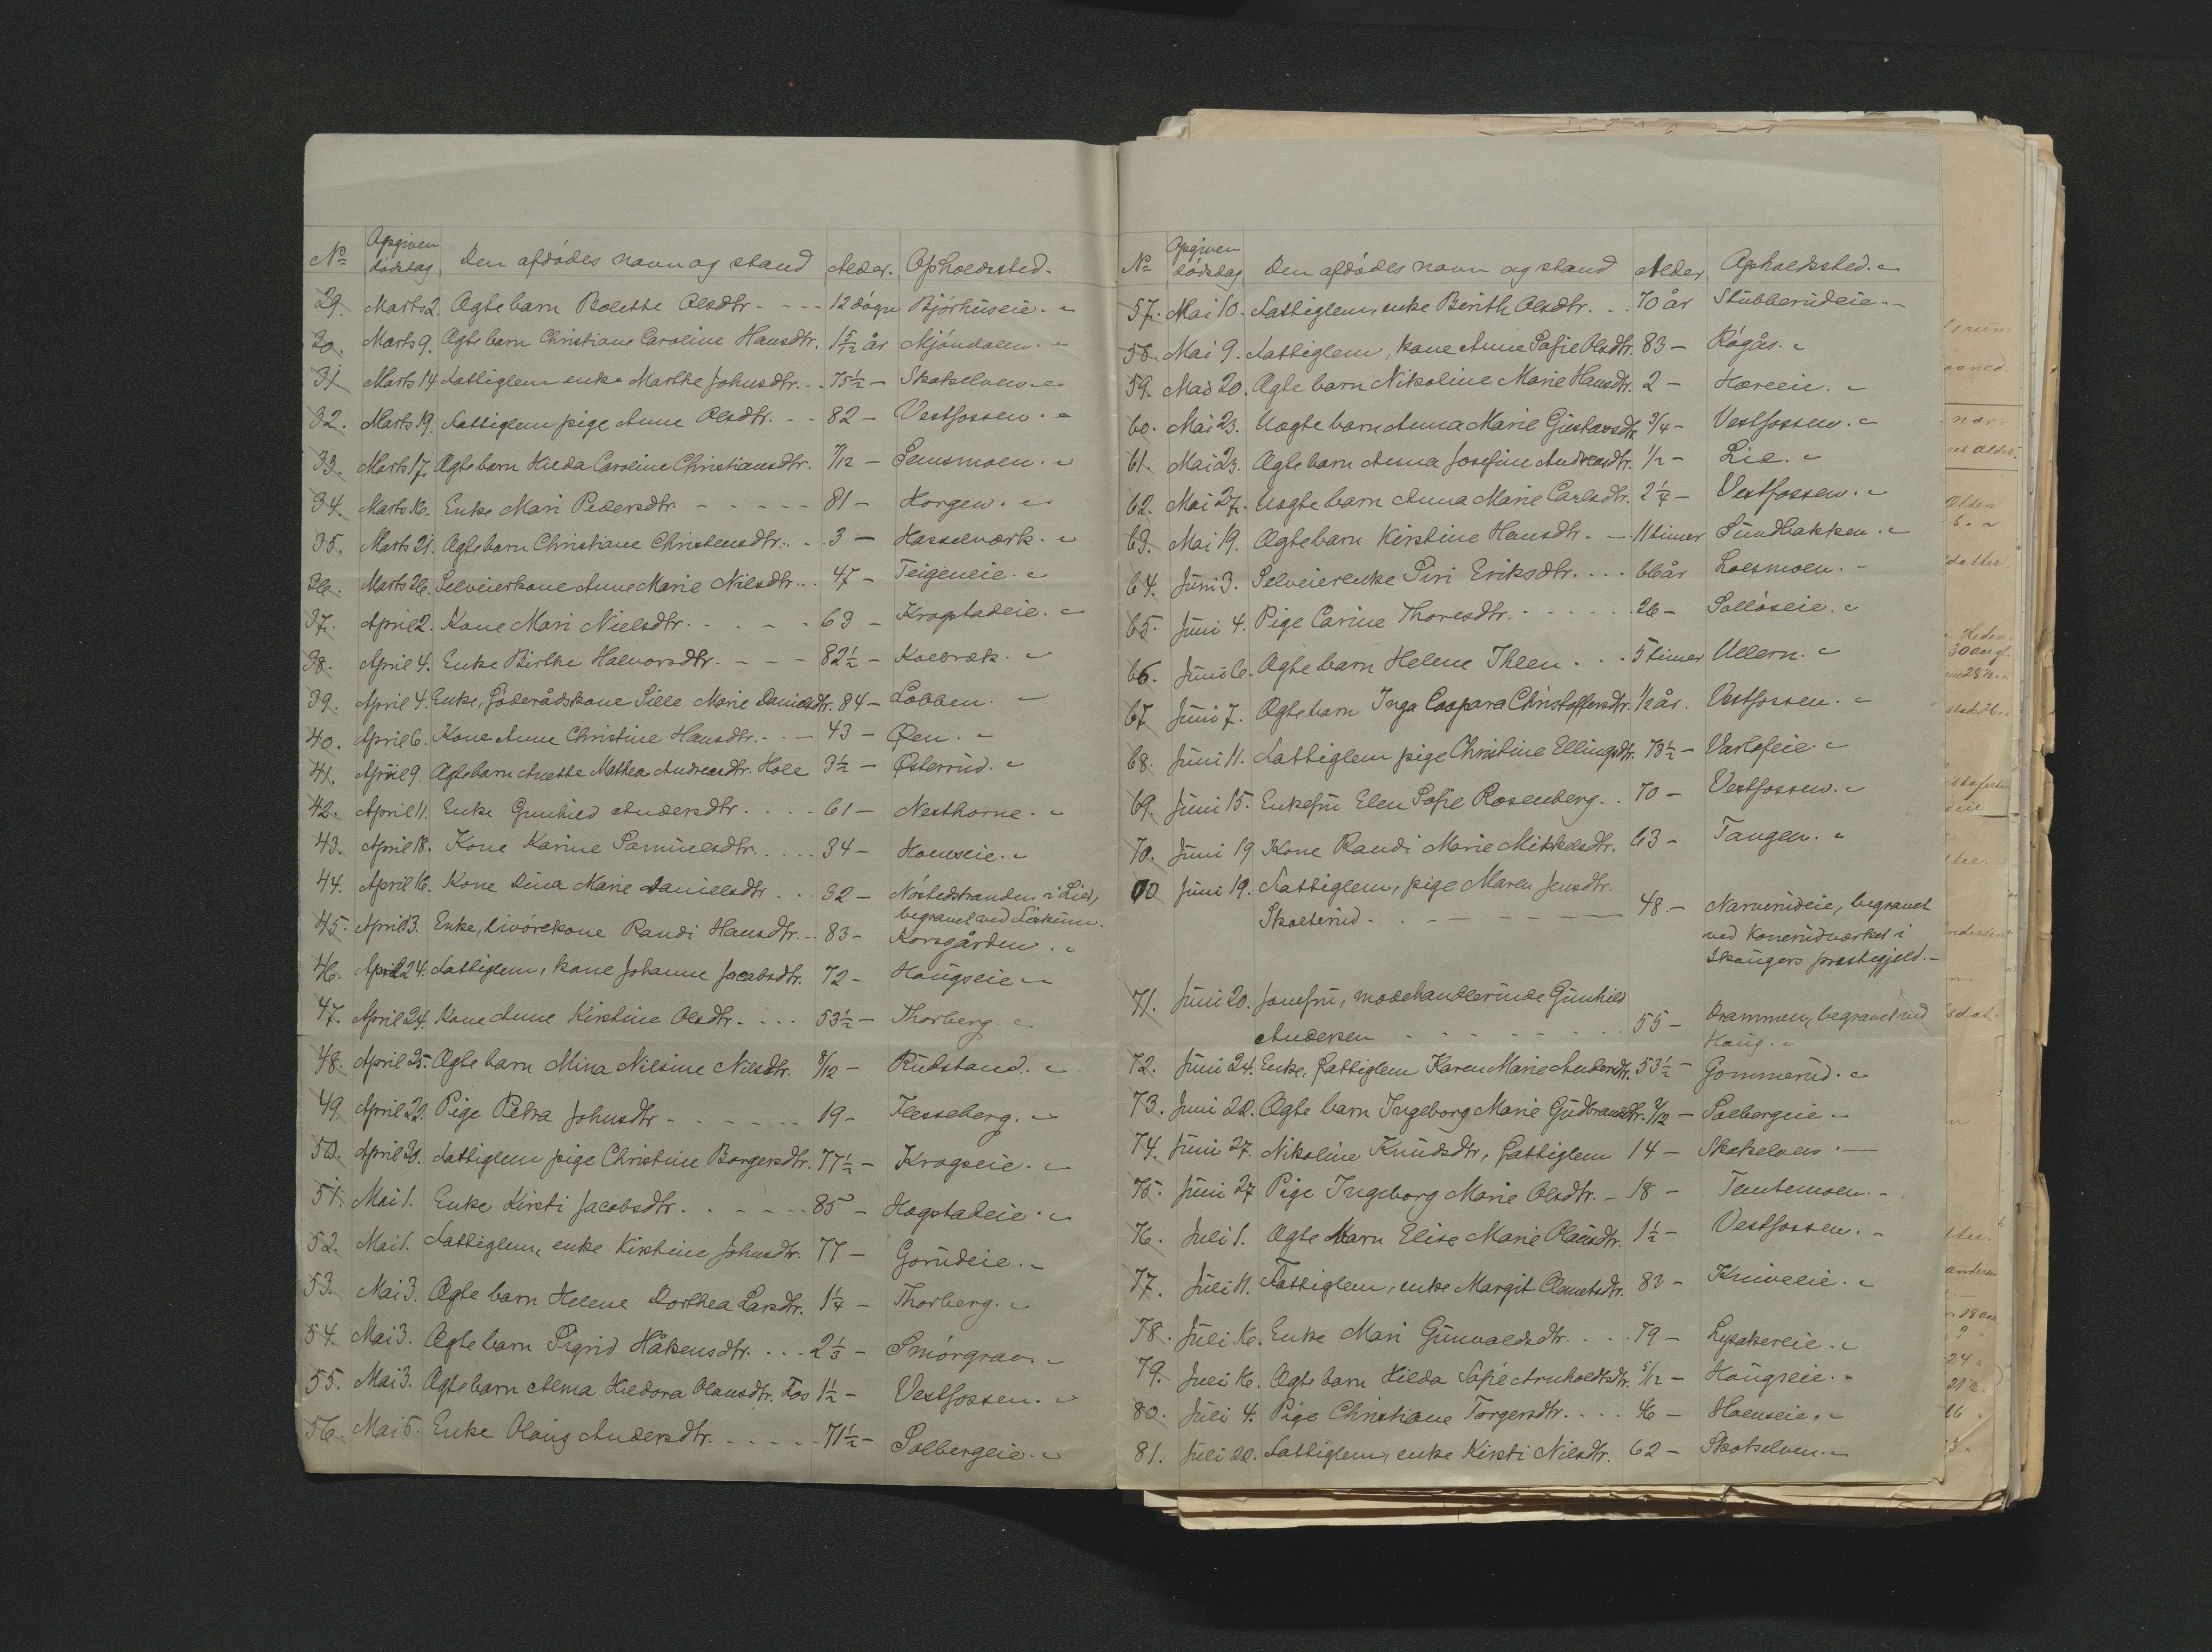 No Opgiven dødsdag. Den afdødes navn og stand Alder. Opholdssted.
29. Marts 2. Ægte barn Bolette Olsdtr. - - - 12 døgn Bjørhuseie.
30. Marts 9. Ægte barn Christiane Caroline Hansdtr. 1 5/12 år Mjøndalen.
31. Marts 14. Fattiglem enke Marthe Johnsdtr. - - 75½ - Skotselven.
32. Marts 19. Fattiglem pige Anne Olsdtr. - - 82 - Vestfossen.
33. Marts 17. Ægte barn Hilda Caroline Christiansdtr. 7/12 - Semsmoen.
34. Marts 16. Enke Mari Pedersdtr. - - - - - 81 - Horgen.
35. Marts 21. Ægte barn Christiane Christensdtr. - . 3 - Hasselværk.
36. Marts 26. Selveierkone Anne Marie Nilsdtr. - . 47 - Teigeneie.
37. April 2. Kone Mari Nielsdtr. - . - - 63 - Krogstadeie.
38. April 4. Enke Birthe Halvorsdtr. - - - 82½ - Kolbræk.
39. April 4. Enke, føderådskone Sille Marie Danielsdtr. 84 - Løbben.
40. April 6. Kone Anne Christine Hansdtr. - - - 43 - Øen.
41. April 9. Ægte barn Anette Mathea Andreasdtr. Hole 3½ - Østerud.
42. April 11. Enke Gunhild Andersdtr. . . . . 61 - Nesthorne.
43. April 18. Kone Karine Samuelsdtr. . . . . 34 - Hoenseie.
44. April 16. Kone Dina Marie Danielsdtr. . . 32 - Nøstedstranden i Lier,
begravet ved
45. April 13. Enke, livørekone Randi Hansdtr. - - 83 - Korsgården.
46. April 24. Fattiglem, kone Johanne Jacobsdtr. 72 - Haugseie
47. April 24. Kone Anne Kirstine Olsdtr. - . . . 53½ - Thorberg.
48. April 25. Ægte barn Mina Nilsine Nilsdtr. 8/12 - Rudstand.
49. April 22. Pige Petra Johnsdtr. - . - - . . . 19 - Flesseberg.
50. April 30. Fattiglem pige Christine Borgersdtr. 77½ - Krogseie.
51. Mai 1. Enke Kirsti Jacobsdtr. . . - - - - 85 - Hogstadeie.
52. Mai 1. Fattiglem, enke Kirstine Johnsdtr. 77 - Gorudeie.
53. Mai 3. Ægte barn Helene Dorthea Larsdtr. 1¼ - Thorberg.
54. Mai 3. Ægte barn Sigrid Håkensdtr. . . . 2⅓ - Smørgrav.
55. Mai 3. Ægte barn Alma Hildora Olausdtr. Fos 1½ - Vestfossen.
56. Mai 5. Enke Olaug Andersdtr. . - - - - 71½ - Solbergeie.
No Opgiven dødsdag Den afdødes navn og stand Alder Opholdssted.
57. Mai 10. Fattiglem, enke Berith Olsdtr. . . 70 år Stubberudeie.
58. Mai 9. Fattiglem, kone Anne Sofie Olsdtr. 83 - Rågås.
59. Mai 20. Ægte barn Nikoline Marie Hansdtr. 2 - Hæreeie.
60. Mai 23. Uægte barn Anna Marie Gustavsdtr. 3/4 - Vestfossen.
61. Mai 23. Ægte barn Anna Josefine Andreasdtr. 1/2 - Lie.
62. Mai 27. Uægte barn Anna Marie Carlsdtr. 2¼ - Vestfossen.
63. Mai 19. Ægte barn Kirstine Hansdtr. - - 11 timer Sundbakken.
64. Juni 3. Selveierenke Siri Eriksdtr. . . . . 66 år Loesmoen. -
65. Juni 4. Pige Carine Thoresdtr. - - - - - - 26 - Solløseie.
66. Juni 6. Ægte barn Helene Thlen . . . 5 timer Ullern.
67. Juni 7. Ægte barn Inga Caspara Christoffersdtr. 1/2 år. Vestfossen.
68. Juni 11. Fattiglem pige Christine Ellingsdtr. 73½ - Varlofeie.
69. Juni 15. Enkefru Elen Sofie Rosenberg. . . 70 - Vestfossen.
70. Juni 19 Kone Randi Marie Mikkelsdtr. 63 - Tangen.
70 Juni 19. Fattiglem, pige Maren Jensdtr.
Skolterud - . - - - - - 48. - Narverudeie, begravet
ved Konerudværket i
Skougers prestegjeld. -
71. Juni 20. Jomfru, modehandlerinde Gunhild
Andersen . . . . . . . 55 - Drammen, begravet ved
Haug.
72. Juni 24. Enke, fattiglem Karen Marie Andersdtr. 53½ - Gommerud.
73. Juni 22. Ægte barn Ingeborg Marie Gudbrandsdtr. 7/12 - Solbergeie
74. Juni 27. Nikoline Knudsdtr, fattiglem 14 - Skotselven. -
75. Juni 27 Pige Ingeborg Marie Olsdtr. - 18 - Temtemoen. -
76. Juli 1. Ægte barn Elise Marie Olausdtr. 1½ - Vestfossen. -
77. Juli 11. Fattiglem, enke Margit Clemetsdtr. 83 - Kniveeie.
78. Juli 16. Enke Mari Gunvaldsdtr. . . . 79 - Lysakereie.
79. Juli 16. Ægte barn Hilda Sofie Arnholdtsdtr. 5/12 - Haugseie.
80. Juli 4. Pige Christiane Torgersdtr. . . . 46 - Hoenseie.
81. Juli 22. Fattiglem, enke Kirsti Nilsdtr. 62 - Skotselven.